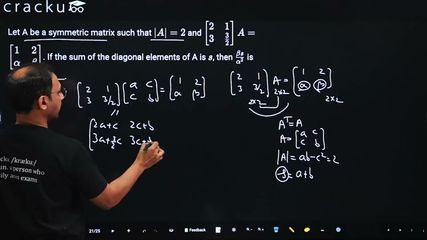 cracku
Let A be a symmetric matrix such that |A| = 2 and [2 1; 3 3/2] A =
[1 2; α β]. If the sum of the diagonal elements of A is s, then βs/α² is
[2 1; 3 3/2] [a c; c b] = [1 2; α β]
[2 1; 3 3/2] A = [1 2; α β]
2x2 2x2
2a+c 2c+b
3a+3/2c 3c+
Aᵀ = A
A = [a c; c b]
|A| = ab-c² = 2
s = a+b
21/25